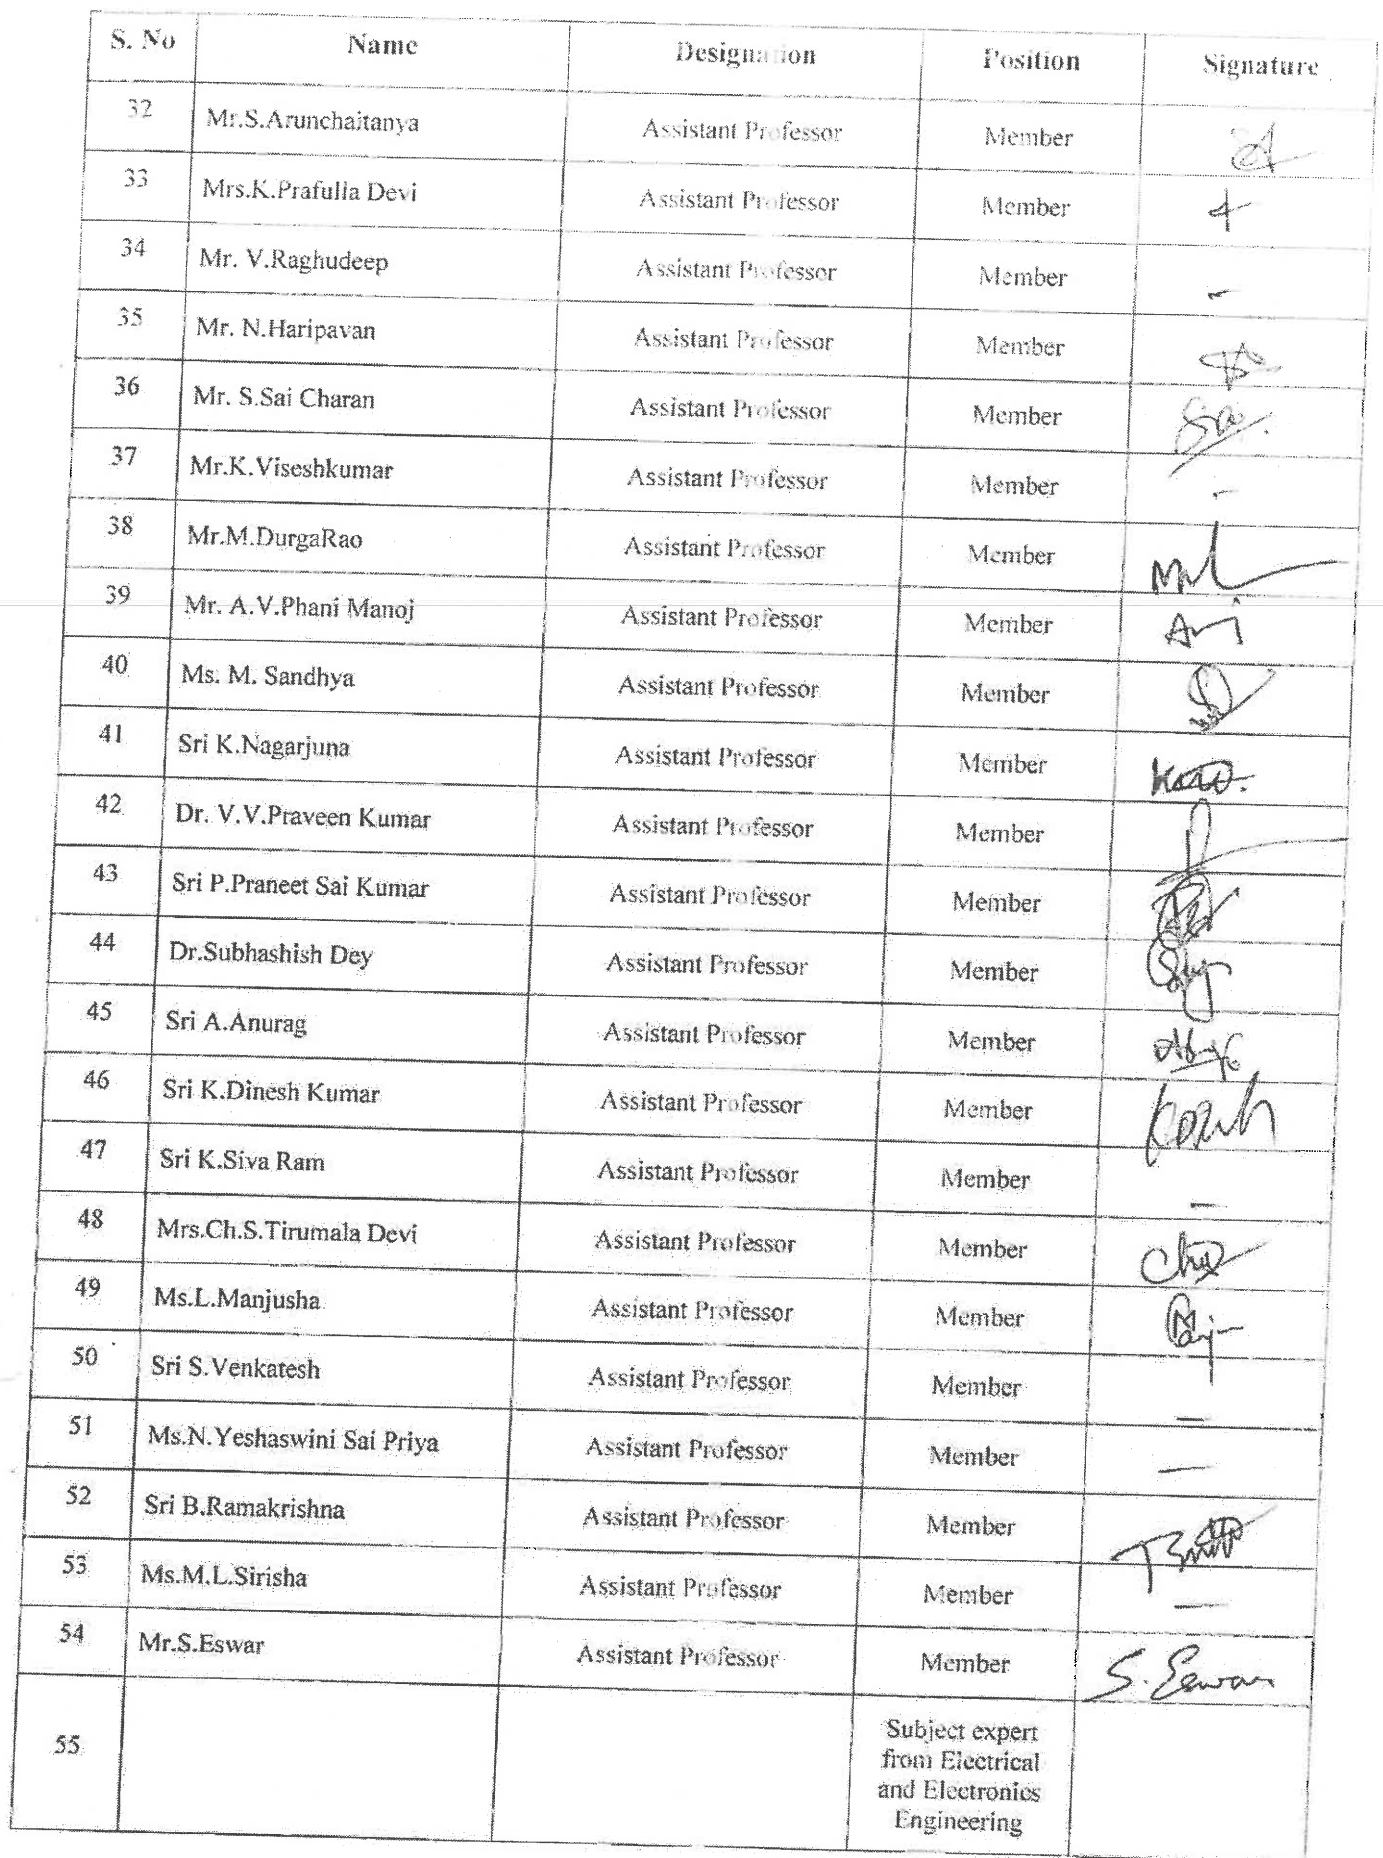 S. No Name Designation Position Signature
32 Mr.S.Arunchaitanya Assistant Professor Member
33 Mrs.K.Prafulla Devi Assistant Professor Member
34 Mr. V.Raghudeep Assistant Professor Member -
35 Mr. N.Haripavan Assistant Professor Member
36 Mr. S.Sai Charan Assistant Professor Member Sai
37 Mr.K.Viseshkumar Assistant Professor Member -
38 Mr.M.DurgaRao Assistant Professor Member
39 Mr. A.V.Phani Manoj Assistant Professor Member
40 Ms. M. Sandhya Assistant Professor Member
41 Sri K.Nagarjuna Assistant Professor Member
42 Dr. V.V.Praveen Kumar Assistant Professor Member
43 Sri P.Praneet Sai Kumar Assistant Professor Member
44 Dr.Subhashish Dey Assistant Professor Member
45 Sri A.Anurag Assistant Professor Member
46 Sri K.Dinesh Kumar Assistant Professor Member
47 Sri K.Siva Ram Assistant Professor Member -
48 Mrs.Ch.S.Tirumala Devi Assistant Professor Member
49 Ms.L.Manjusha Assistant Professor Member
50 Sri S.Venkatesh Assistant Professor Member -
51 Ms.N.Yeshaswini Sai Priya Assistant Professor Member -
52 Sri B.Ramakrishna Assistant Professor Member
53 Ms.M.L.Sirisha Assistant Professor Member -
54 Mr.S.Eswar Assistant Professor Member S. Eswar
55 Subject expert
from Electrical
and Electronics
Engineering